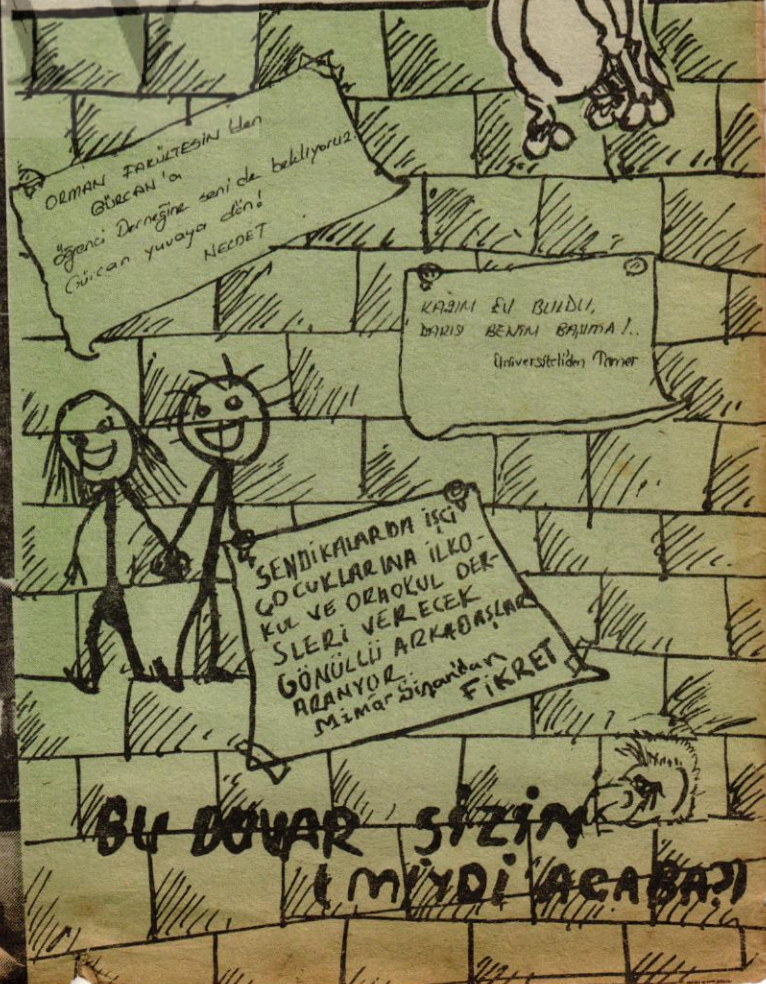 ORMAN FAKÜLTESİN'den
GÜRCAN'a
öğenci Derneğine seni de bekliyoruz
Gürcan yuvaya dön!
NECDET
KAZIM EV BULDU,
DARISI BENİM BAŞIMA!..
Üniversiteliden Tamer
SENDİKALARDA İŞÇİ
ÇOCUKLARINA İLKO-
KUL VE ORAOKUL DER-
SLERİ VERECEK
GÖNÜLLÜ ARKADAŞLAR
ARANYOR..
Mimar Sinan'dan
FİKRET
BU DUVAR SİZİN
(MİYDİ ACABA?)